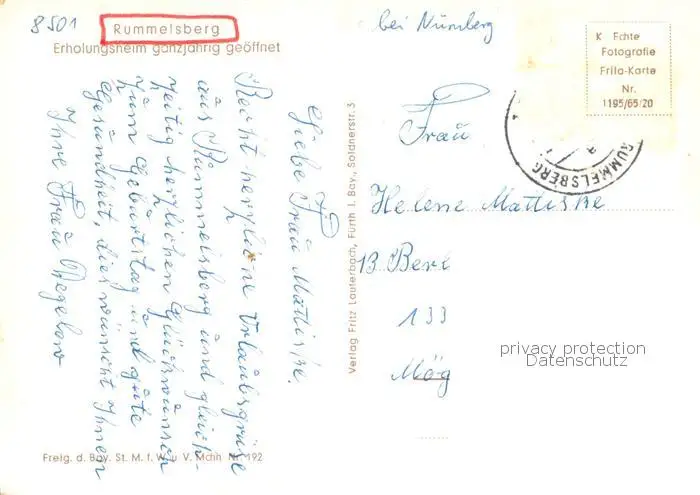 8501
Rummelsberg
Erholungsheim ganzjährig geöffnet
bei Nürnberg
K Echte
Fotografie
Frila-Karte
Nr.
1195/65/20
RUMMELSBERG
Liebe Frau Mattiske.
Recht herzliche Urlaubsgrüße
aus Rummelsberg und gleich-
zeitig herzlichen Glückwunsch
zum Geburtstag und gute
Gesundheit, dies wünscht Ihnen
Ihre Frau Wegelow
Verlag Fritz Lauterbach, Fürth i. Bay., Soldnerstr. 3
Frau
Helene Mattiske
13 Berl
133
Mög
privacy protection
Datenschutz
Freig. d. Bay. St. M. f. W. u. V. Mchn Nr. 192